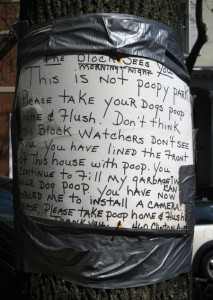 The Block Sees You
morning night
This is not poopy park
Please take your dogs poop
home & flush! Don't think
the Block Watchers Don't see
you. you have lined the front
of this house with poop. you
continue to fill my garbage
can
your dog poop. you have now
forced me to install a camera!
Please take poop home & flush
Thank you!